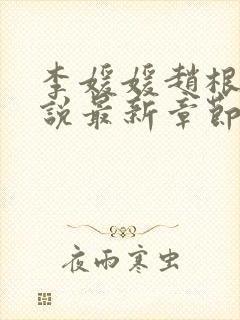 李媛媛趙根
說最新章節
夜雨寒虫